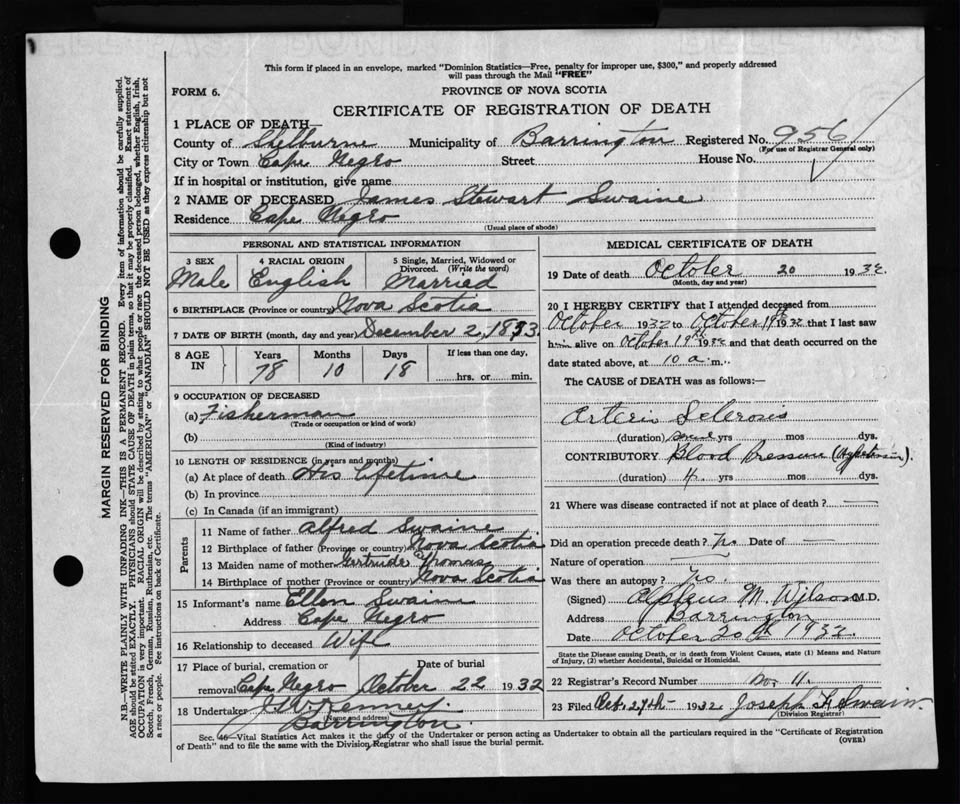 This form if placed in an envelope, marked "Dominion Statistics—Free, penalty for improper use, $300," and properly addressed
will pass through the Mail "FREE"
FORM 6.
PROVINCE OF NOVA SCOTIA
CERTIFICATE OF REGISTRATION OF DEATH
1 PLACE OF DEATH—
County of Shelburne Municipality of Barrington Registered No. 956
(For use of Registrar General only)
City or Town Cape Negro Street House No.
If in hospital or institution, give name
2 NAME OF DECEASED James Stewart Swaine
Residence Cape Negro
(Usual place of abode)
PERSONAL AND STATISTICAL INFORMATION
3 SEX 4 RACIAL ORIGIN 5 Single, Married, Widowed or Divorced. (Write the word)
Male English Married
6 BIRTHPLACE (Province or country) Nova Scotia
7 DATE OF BIRTH (month, day and year) December 2, 1853.
8 AGE IN Years Months Days If less than one day,
78 10 18 hrs. or min.
9 OCCUPATION OF DECEASED
(a) Fisherman
(Trade or occupation or kind of work)
(b)
(Kind of industry)
10 LENGTH OF RESIDENCE (in years and months)
(a) At place of death His lifetime
(b) In province
(c) In Canada (if an immigrant)
Parents
11 Name of father Alfred Swaine
12 Birthplace of father (Province or country) Nova Scotia
13 Maiden name of mother Gertrude Thomas
14 Birthplace of mother (Province or country) Nova Scotia
15 Informant's name Ellen Swaine
Address Cape Negro
16 Relationship to deceased Wife
17 Place of burial, cremation or Date of burial
removal Cape Negro October 22 1932
18 Undertaker J.W. Kenney
(Name and address)
Barrington.
MEDICAL CERTIFICATE OF DEATH
19 Date of death October 20 1932
(Month, day and year)
20 I HEREBY CERTIFY that I attended deceased from
October 1932 to October 19th 1932 that I last saw
him alive on October 19th 1932 and that death occurred on the
date stated above, at 10 a. m.
The CAUSE of DEATH was as follows:—
Arterio Sclerosis
(duration) some yrs mos dys.
CONTRIBUTORY Blood Pressure (Hypertension).
(duration) yrs. mos. dys.
21 Where was disease contracted if not at place of death?
Did an operation precede death? No. Date of —
Nature of operation —
Was there an autopsy? No.
(Signed) Alpheus M. Wilson M.D.
Address Barrington
Date October 20th 1932.
State the Disease causing Death, or in death from Violent Causes, state (1) Means and Nature
of Injury, (2) whether Accidental, Suicidal or Homicidal.
22 Registrar's Record Number No.
23 Filed Oct. 27th 1932 Joseph Swain.
(Division Registrar)
Sec. 46—Vital Statistics Act makes it the duty of the Undertaker or person acting as Undertaker to obtain all the particulars required in the "Certificate of Registration
of Death" and to file the same with the Division Registrar who shall issue the burial permit. (OVER)
MARGIN RESERVED FOR BINDING
N.B.—WRITE PLAINLY WITH UNFADING INK—THIS IS A PERMANENT RECORD. Every item of information should be carefully supplied.
AGE should be stated EXACTLY. PHYSICIANS should STATE CAUSE OF DEATH in plain terms, so that it may be properly classified. Exact statement of
OCCUPATION is very important. RACIAL ORIGIN will be described by stating to what people or race the deceased person belonged, whether English, Irish,
Scotch, French, German, Russian, Ruthenian, etc. The terms "AMERICAN" or "CANADIAN" SHOULD NOT BE USED as they express citizenship but not
a race or people. See instructions on back of Certificate.